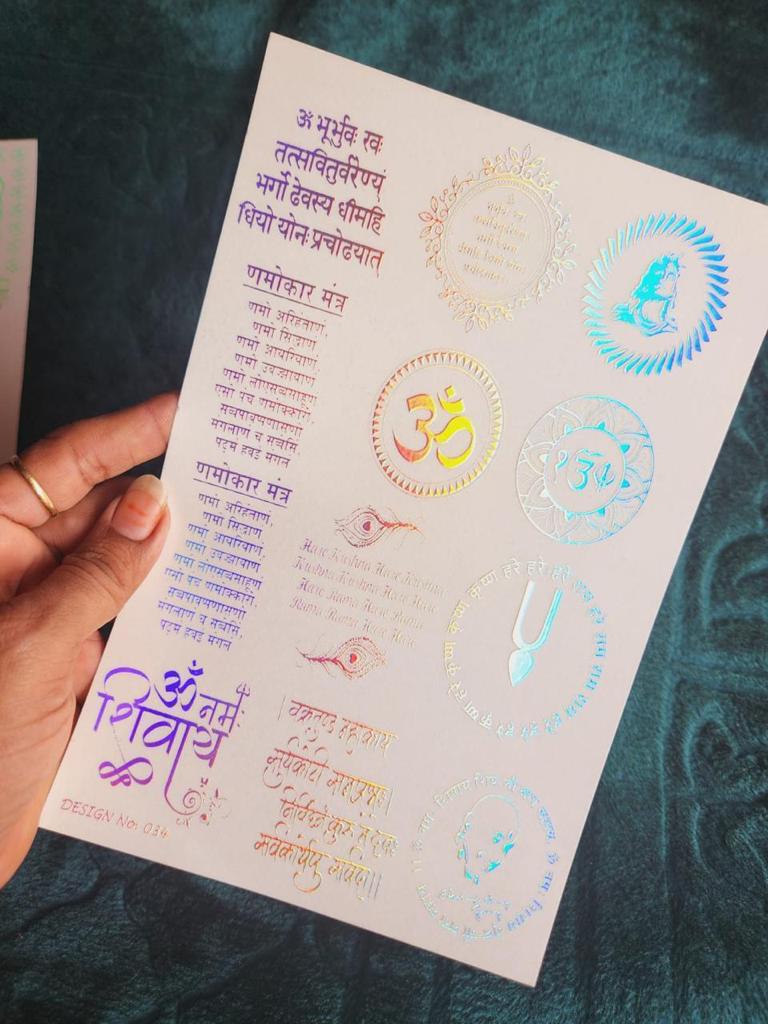 ॐ भूर्भुवः रवः
तत्सवितुर्वरेण्यं
भर्गो देवस्य धीमहि
धियो योनःप्रचोदयात्
णमोकार मंत्र
णमो अरिहंताणं,
णमो सिद्धाणं
णमो आयरियाणं,
णमो उवज्झायाणं
णमो लोएसव्वसाहूणं
एसो पंच णमोक्कारो,
सव्वपावप्पणासणो
मंगलाणं च सव्वेसिं,
पढ़मं हवई मंगलं
णमोकार मंत्र
णमो अरिहंताणं,
णमो सिद्धाणं
णमो आयरियाणं,
णमो उवज्झायाणं
णमो लोएसव्वसाहूणं
एसो पंच णमोक्कारो,
सव्वपावप्पणासणो
मंगलाणं च सव्वेसिं,
पढ़मं हवई मंगलं
ॐ नमः
शिवाय
DESIGN No: 034
ॐ
ॐ
Hare Krishna Hare Krishna
Krishna Krishna Hare Hare
Hare Rama Hare Rama
Rama Rama Hare Hare
हरे कृष्णा हरे कृष्णा कृष्णा कृष्णा हरे हरे हरे राम हरे राम राम राम हरे हरे
। वक्रतुण्ड महाकाय
सुर्यकोटी समप्रभ।
निर्विघ्नं कुरु मे देव
सर्वकार्येषु सर्वदा।।